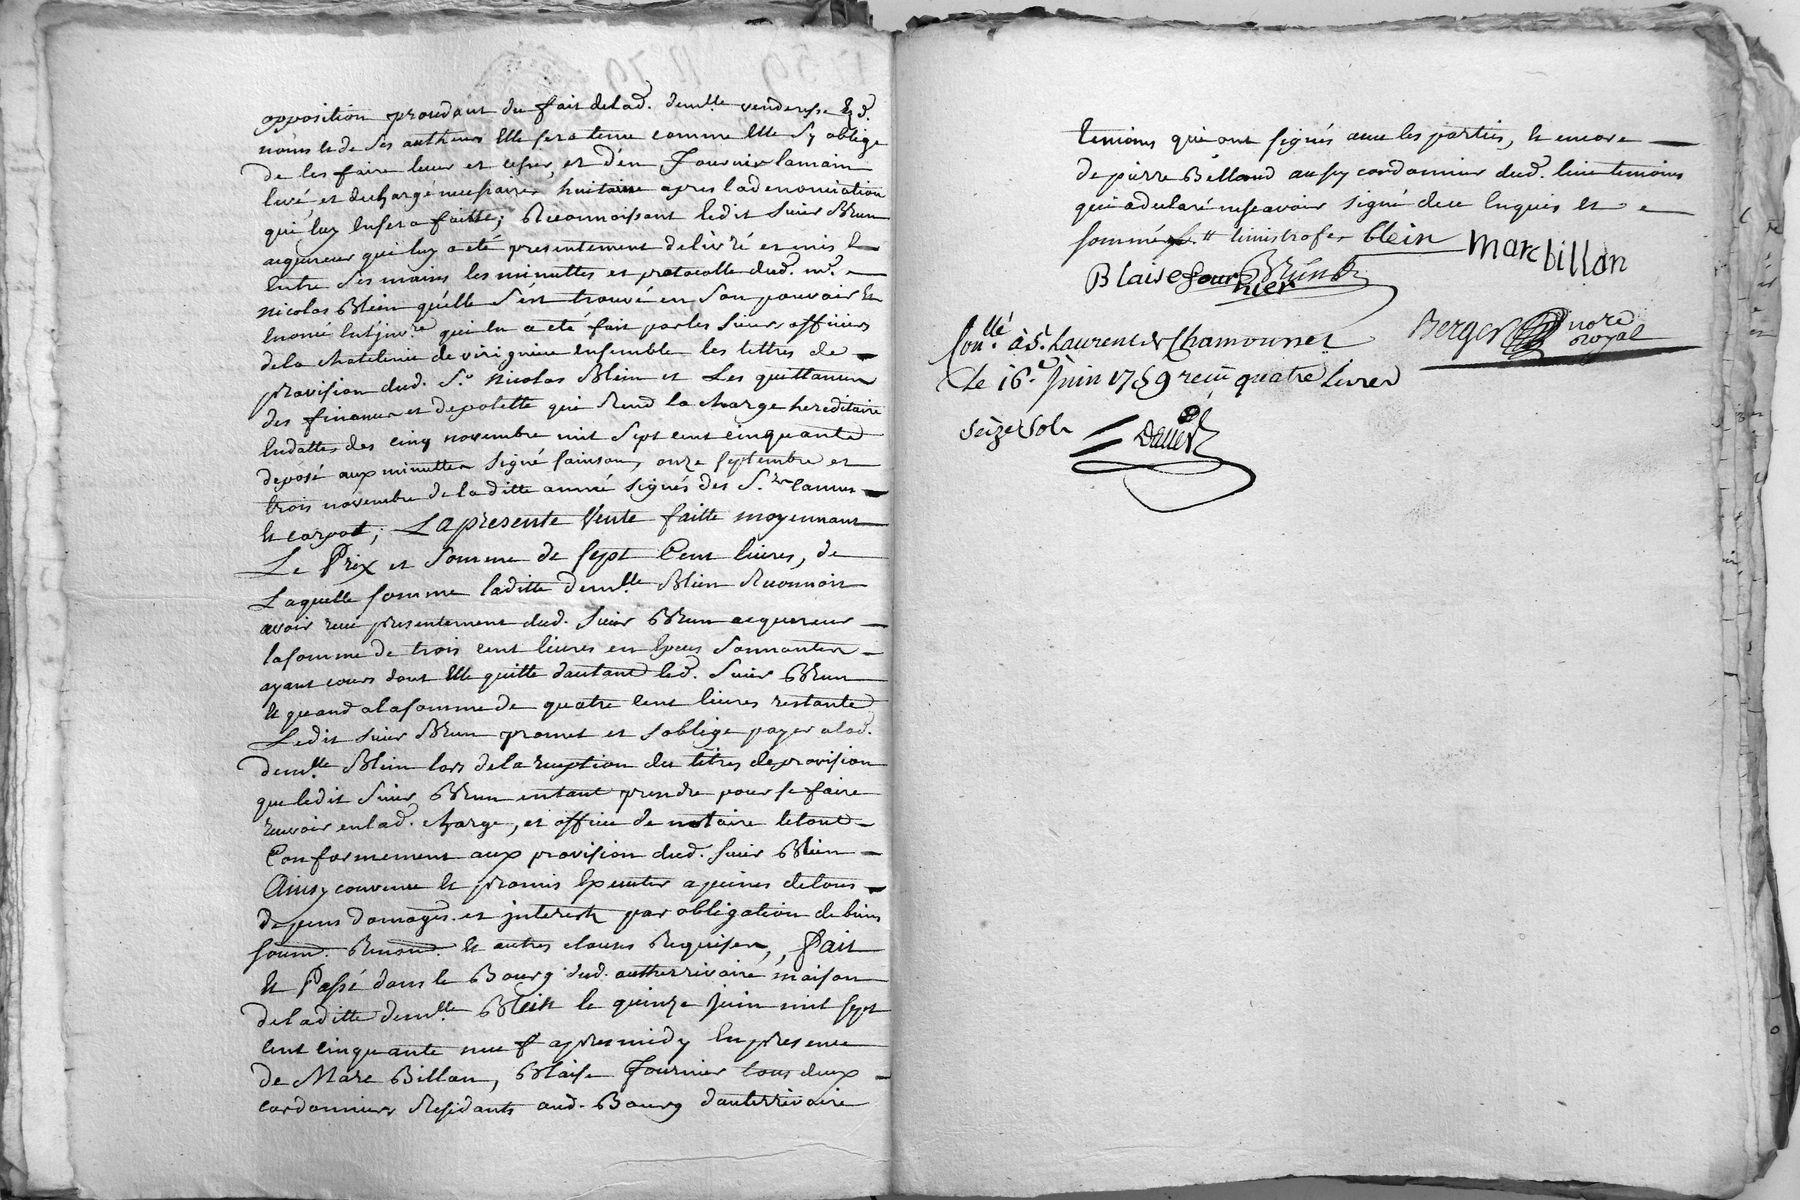 opposition procedant du fait de lad. demlle. venderesse Et d.
noins et de ses autheurs Elle sera tenue comme elle s'y oblige
de les faire lever et cesser, et d'en fournir la main
levé et decharge necessaires huitaine apres la denonciation
qui luy En sera faitte; Reconnoissant ledit sieur Brun
acquereur qui luy a eté presentement delivré et mis Et
Entre ses mains les minuttes et protocolle dud. mr.
nicolas Blein qu'elle s'est trouvé en son pouvoir Et
qui en a eté fait par les sieurs officiers
de la chatelenie de virignieu Ensemble les lettres de
provision dud. Sr. nicolas Blein et Les quittances
des finances et depolette qui Rend la charge hereditaire
En dattes des cinq novembre mil sept cent cinquante
deposé aux minuttes signé sainson, onze septembre et
trois novembre de la ditte année signés des Srs. Camus
Et carpot; La presente Vente faitte moyennant
Le Prix et somme de sept Cent livres, de
Laquelle somme laditte demlle. Blein Reconnoit
avoir receu presentement dud. sieur Brun acquereur
la somme de trois cent livres en Especes sonnantes
ayant cours dont Elle quitte dautant led. sieur Brun
Et quand a la somme de quatre cent livres restante
Ledit sieur Brun promet et s'oblige payer a lad.
demlle. Blein lors de la reception des titres de provision
que ledit sieur Brun entant prendre pour se faire
recevoir en lad. charge, et office de notaire le tout
Conformement aux provision dud. sieur Blein
Ainsy convenu Et promis Executer a peines de tous
depens domages. et interest par obligation de biens
soum. Renond. Et autres clauses Requises, fait
Et Passé dans le Bourg dud. autherrivoire maison
de laditte demlle. Blein le quinze juin mil sept
cent cinquante neuf apresmidy En presence
de Marc Billan, Blaise fournier tous deux
cordonniers Residants aud. Bourg d'auterrivoire
temoins qui ont signés avec les parties, Et encore
de pierre Billand aussy cordonnier dud. lieu temoins
qui a declaré ne scavoir signé de ce Enquis Et
sommé blein Marc billan
Blaise fournier Brun
Conllé. à St. Laurent de Chamousset Berger nore royal
Le 16e. juin 1759 receu quatre livres
seize sols